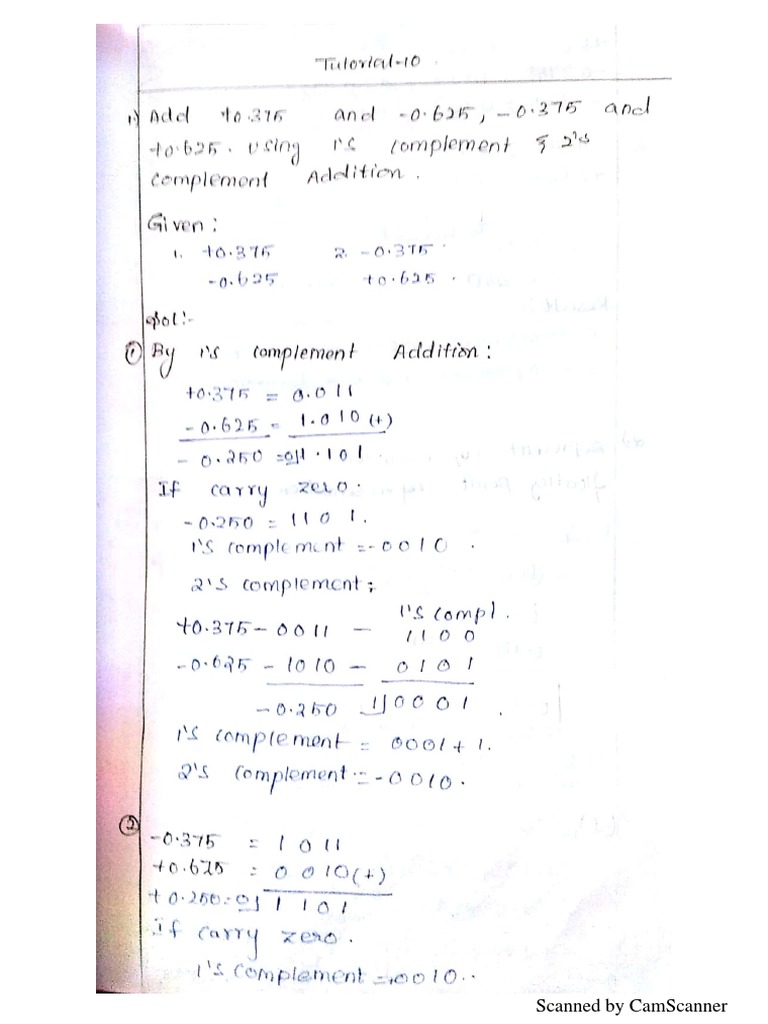 Tutorial-10
1.) Add +0.375 and -0.625, -0.375 and
+0.625. using 1's complement & 2's
complement Addition.
Given:
1. +0.375 2. -0.375
-0.625 +0.625.
Sol:-
① By 1's complement Addition:
+0.375 = 0.011
-0.625 = 1.010 (+)
- 0.250 = 0]1.101.
If carry zero.
-0.250 = 1101.
1's complement = -0010.
2's complement;
1's compl.
+0.375 - 0011 - 1100
-0.625 - 1010 - 0101
-0.250 1]0001.
1's complement = 0001+1.
2's complement = -0010.
②
-0.375 = 1011
+0.625 = 0010(+)
+0.250 = 0] 1101
If carry zero.
1's complement = 0010.
Scanned by CamScanner